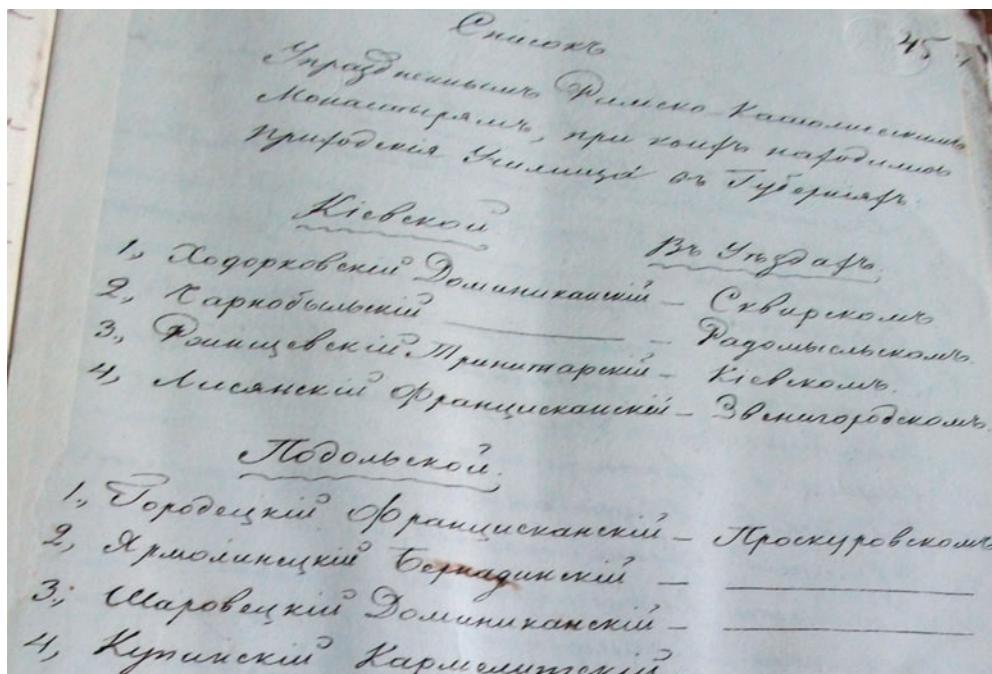 Списокъ
45
Упраздненнымъ Римско-Католическимъ
Монастырямъ, при коихъ находились
приходскія Училища въ Губерніяхъ:
Кіевской
Въ Уѣздахъ.
1., Ходорковскій Доминиканскій – Сквирскомъ
2., Чарнобыльскій ——— – Радомысльскомъ.
3., Ржищевскій Тринитарскій – Кіевскомъ.
4, Лисянскій Францисканскій – Звенигородскомъ.
Подольской.
1., Городецкій Францисканскій – Проскуровскомъ
2, Ярмолинецкій Бернадинскій – ———
3., Шаровецкій Доминиканскій – ———
4, Купинскій Кармелитскій